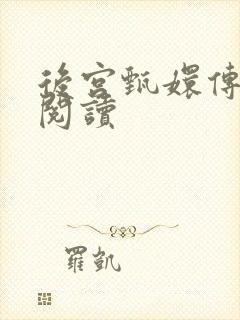 後宮甄嬛傳
閱讀
羅凱